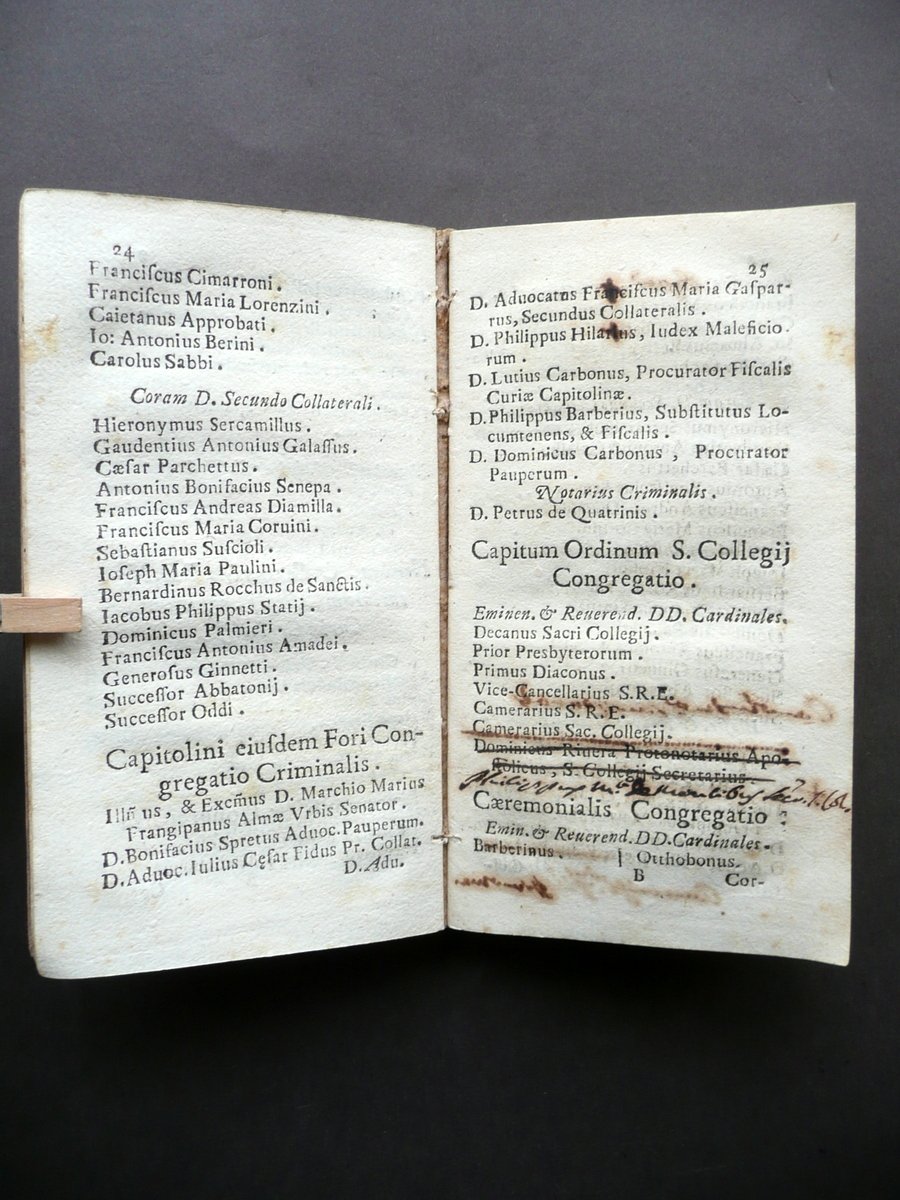 24
Franciſcus Cimarroni.
Franciſcus Maria Lorenzini.
Caietanus Approbati.
Io: Antonius Berini.
Carolus Sabbi.
Coram D. Secundo Collaterali.
Hieronymus Sercamillus.
Gaudentius Antonius Galaſſus.
Cæſar Parchettus.
Antonius Bonifacius Senepa.
Franciſcus Andreas Diamilla.
Franciſcus Maria Coruini.
Sebaſtianus Suſcioli.
Ioſeph Maria Paulini.
Bernardinus Rocchus de Sanctis.
Iacobus Philippus Statij.
Dominicus Palmieri.
Franciſcus Antonius Amadei.
Generoſus Ginnetti.
Succeſſor Abbatonij.
Succeſſor Oddi.
Capitolini eiuſdem Fori Con-
gregatio Criminalis.
Illm̃us, & Excm̃us D. Marchio Marius
Frangipanus Almæ Vrbis Senator.
D. Bonifacius Spretus Aduoc. Pauperum.
D. Aduoc. Iulius Cęſar Fidus Pr. Collat.
D. Adu.
25
D. Aduocatus Franciſcus Maria Gaſpar-
rus, Secundus Collateralis.
D. Philippus Hilarius, Iudex Maleficio-
rum.
D. Lutius Carbonus, Procurator Fiſcalis
Curiæ Capitolinæ.
D. Philippus Barberius, Subſtitutus Lo-
cumtenens, & Fiſcalis.
D. Dominicus Carbonus, Procurator
Pauperum.
Notarius Criminalis.
D. Petrus de Quatrinis.
Capitum Ordinum S. Collegij
Congregatio.
Eminen. & Reuerend. DD. Cardinales.
Decanus Sacri Collegij.
Prior Presbyterorum.
Primus Diaconus.
Vice-Cancellarius S.R.E.
Camerarius S. R. E.
Camerarius Sac. Collegij.
Dominicus Riuera Protonotarius Apo-
ſtolicus, S. Collegij Secretarius.
Cæremonialis Congregatio:
Emin. & Reuerend. DD. Cardinales.
Barberinus. | Otthobonus.
B Cor-